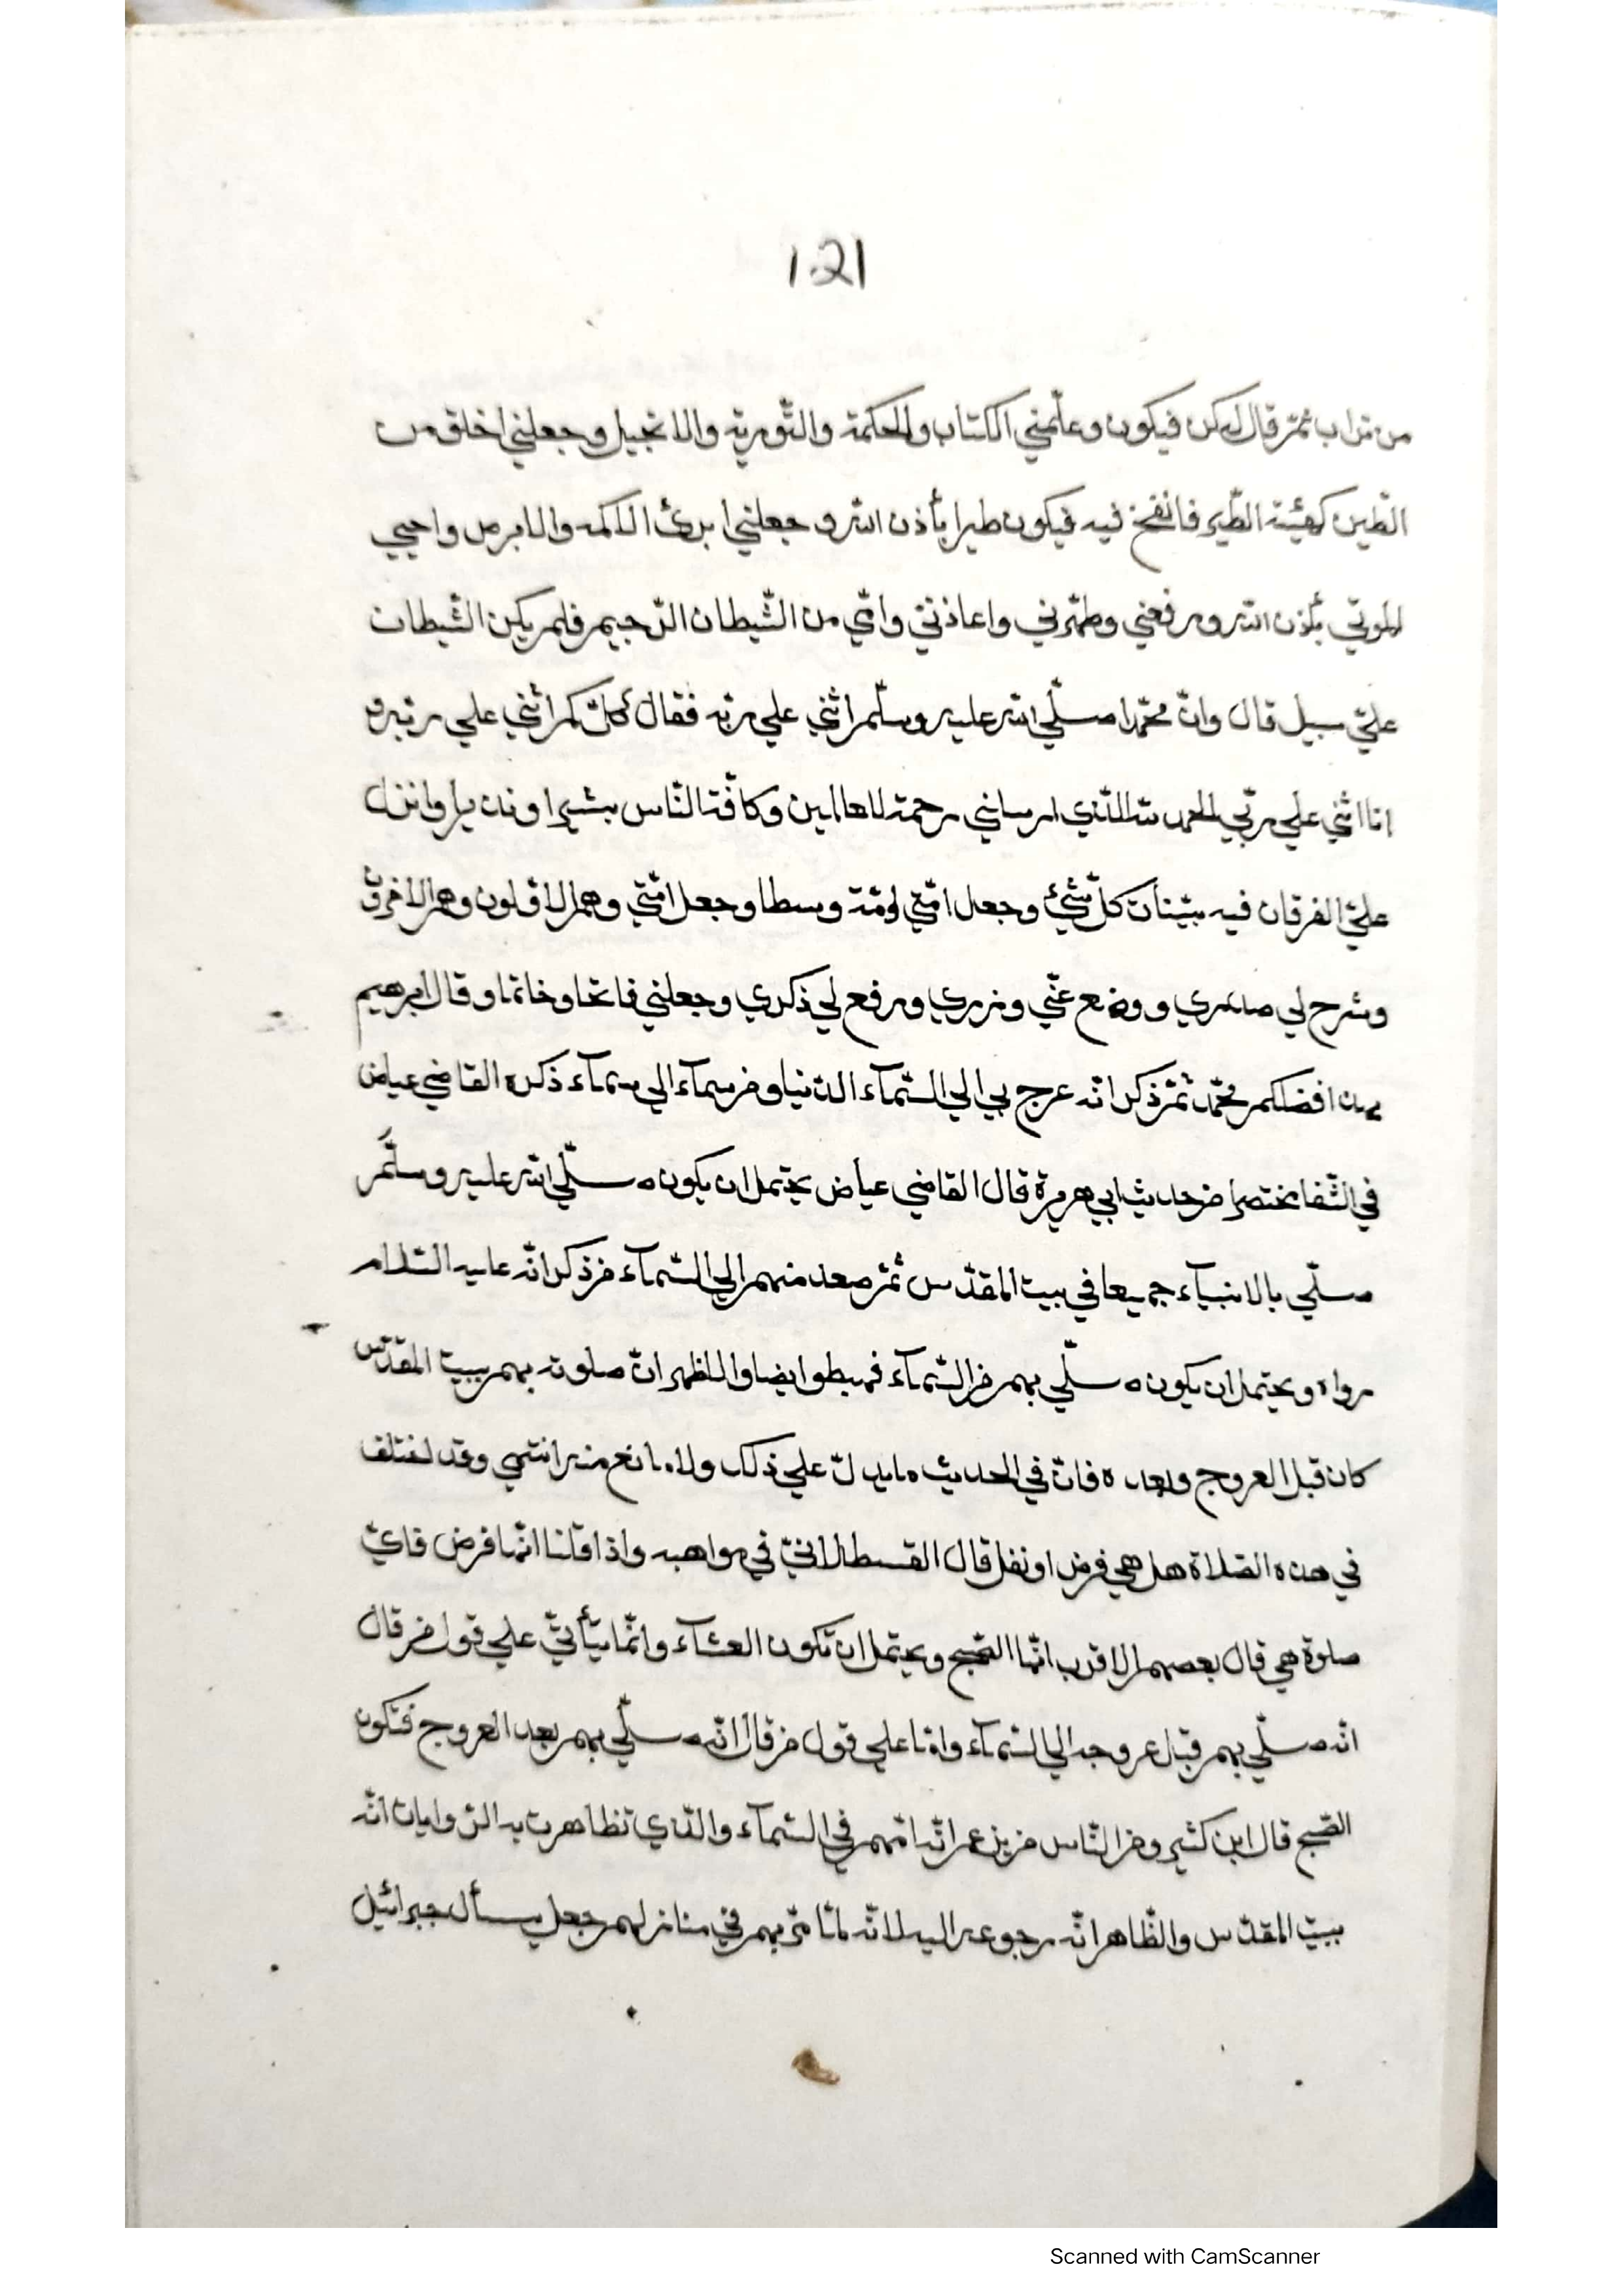 1.21
من تراب ثمّ قال له كن فيكون وعلّمني الكتاب والحكمة والتّورية والانجيل وجعلني اخلق من
الطّين كهيئة الطّير فانفخ فيه فيكون طيرا بأذن الله وجعلني ابرئ الاكمه والابرص واحيي
الموتي بأذن الله ورفعني وطهّرني واعاذني وامّي من الشّيطان الرّجيم فلم يكن الشّيطان
عليّ سبيل قال وانّ محمّدا صلّي الله عليه وسلّم اثني علي ربّه فقال كلّكم اثني علي ربّه و
انا اثني علي ربّي الحمد لله الّذي ارسلني رحمة للعالمين وكافّة النّاس بشيرا ونذيرا وانزل
عليّ الفرقان فيه تبيان كلّ شيئ وجعل امّتي امّة وسطا وجعل امّتي وهم الاوّلون وهم الاخرون
وشرح لي صدري ووضع عنّي وزري ورفع لي ذكري وجعلني فاتحا وخاتما وقال ابرهيم
بهذا افضلكم محمّد ثمّ ذكر انّه عرج بي الي السّماء الدّنيا ومن سماء الي سماء ذكره القاضي عياض
في الشّفا مختصرا من حديث ابي هريرة قال القاضي عياض يحتمل ان يكون صلّي الله عليه وسلّم
صلّي بالانبياء جميعا في بيت المقدّس ثمّ صعد منهم الي السّماء من ذكر انّه عليه السّلام
رواه ويحتمل ان يكون صلّي بهم من السّماء فهبطوا ايضا والاظهر انّ صلوته بهم ببيت المقدّس
كان قبل العروج وبعده فانّ في الحديث ما يدلّ علي ذلك ولا مانع منه انتهي وقد اختلف
في هذه الصّلاة هل هي فرض او نفل قال القسطلانيّ في مواهبه واذا قلنا انّها فرض فايّ
صلوة هي قال بعصهم الاقرب انّها الصّبح ويحتمل ان تكون العشاء وانّما يتأتيّ علي قول من قال
انّه صلّي بهم قبل عروجه الي السّماء وامّا علي قول من قال انّه صلّي بهم بعد العروج فتكون
الصّبح قال ابن كثير ومن النّاس من يزعم انّه امّهم في السّماء والّذي تظاهرت به الرّوايات انّه
ببيت المقدّس والظّاهر انّه رجوعه اليه لانّه لمّا مرّ بهم في منازلهم جعل يسأل جبرائيل
Scanned with CamScanner